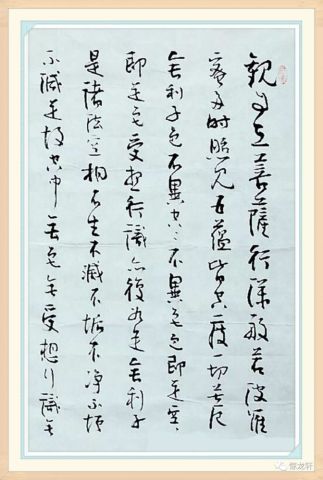 觀自在菩薩行深般若波羅
蜜多時照見五蘊皆空度一切苦厄
舍利子色不異空空不異色色即是空空
即是色受想行識亦復如是舍利子
是諸法空相不生不滅不垢不淨不增
不減是故空中無色無受想行識無